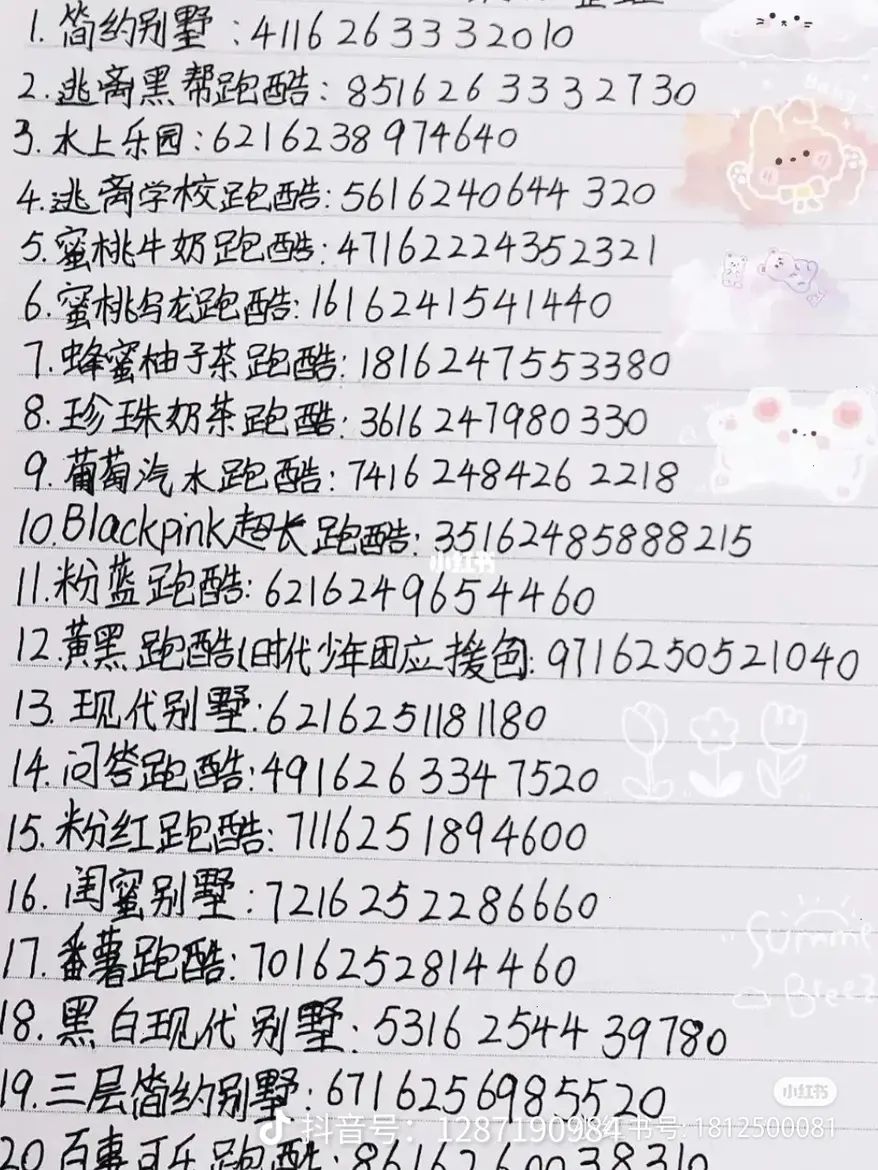 1. 简约别墅：4116263332010
2. 逃离黑帮跑酷：8516263332730
3. 水上乐园：6216238974640
4. 逃离学校跑酷：5616240644320
5. 蜜桃牛奶跑酷：47162224352321
6. 蜜桃乌龙跑酷：1616241541440
7. 蜂蜜柚子茶跑酷：1816247553380
8. 珍珠奶茶跑酷：3616247980330
9. 葡萄汽水跑酷：74162484262218
10. Blackpink超长跑酷：35162485888215
小红书
11. 粉蓝跑酷：6216249654460
12. 黄黑跑酷(时代少年团应援色：9716250521040
13. 现代别墅：6216251181180
14. 问答跑酷：4916263347520
15. 粉红跑酷：7116251894600
16. 闺蜜别墅：7216252286660
17. 番薯跑酷：7016252814460
Summe
Breez
18. 黑白现代别墅：5316254439780
19. 三层简约别墅：6716256985520
小红书
抖音号：1287190984
书号：1812500081
20 百事可乐跑酷：8616260038310